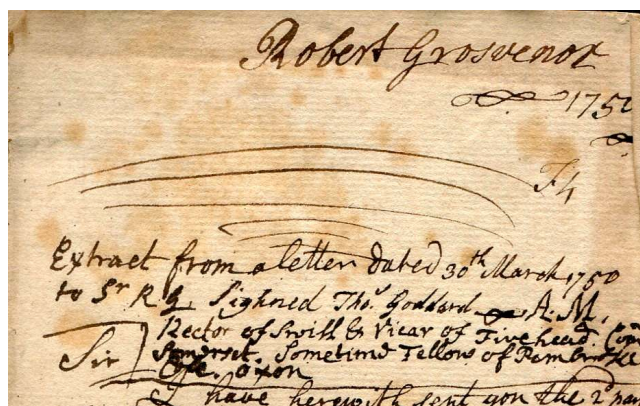 Robert Grosvenor
1752
F4
Extract from a letter dated 30th March 1750
to Sr R G. Sighned Thos. Goddard A.M.
Rector of Swill & Vicar of Fivehead.
Sir Somerset. Sometime Fellow of Pembroke
Coll. Oxon
I have herewith sent you the 2d